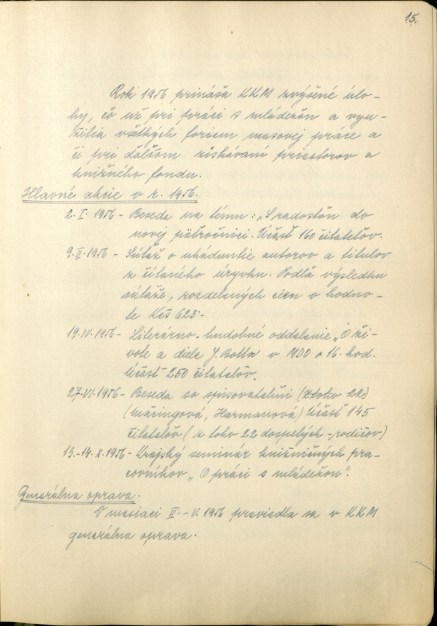 15.
Rok 1956 prináša KKM zvýšené úlo-
hy, čo už pri práci s mládežou a vyu-
žitia všetkých foriem masovej práce a
či pri ďalšom získávaní priestorov a
knižného fondu.
Hlavné akcie v r. 1956.
2. I. 1956 - Beseda na tému: „S radosťou do
novej päťročnici. Účasť 160 čitateľov.
9. II. 1956 - Súťaž o uhádnutie autorov a titulov
z čítaného úryvku. Podľa výsledku
súťaže, rozdelených cien v hodno-
te Kčs 625.-
19. IV. 1956 - Literárno-hudobné oddelenie „O ži-
vote a diele J. Bottu v 1430 a 16 hod.
Účasť 250 čitateľov.
27. VI. 1956 - Beseda so spisovateľmi
Harmanová) Účasť 145
čitateľov (z toho 22 dospelých - rodičov)
13.-14. X. 1956 - Krajský seminár knižničných pra-
covníkov „O práci s mládežou".
Generálna oprava.
V mesiaci II. - V. 1956 previedla sa v KKM
generálna oprava.